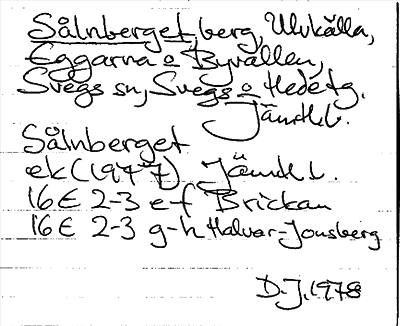 Sålnberget, berg, Ulvkälla,
Eggarna o Byvallen,
Svegs sn, Svegs o Hede tg.
Jämtl.l.
Sålnberget
ek (1977) Jämtl.l.
16E 2-3 e-f Brickan
16E 2-3 g-h Halvar-Jonsberg
D.J. 1978